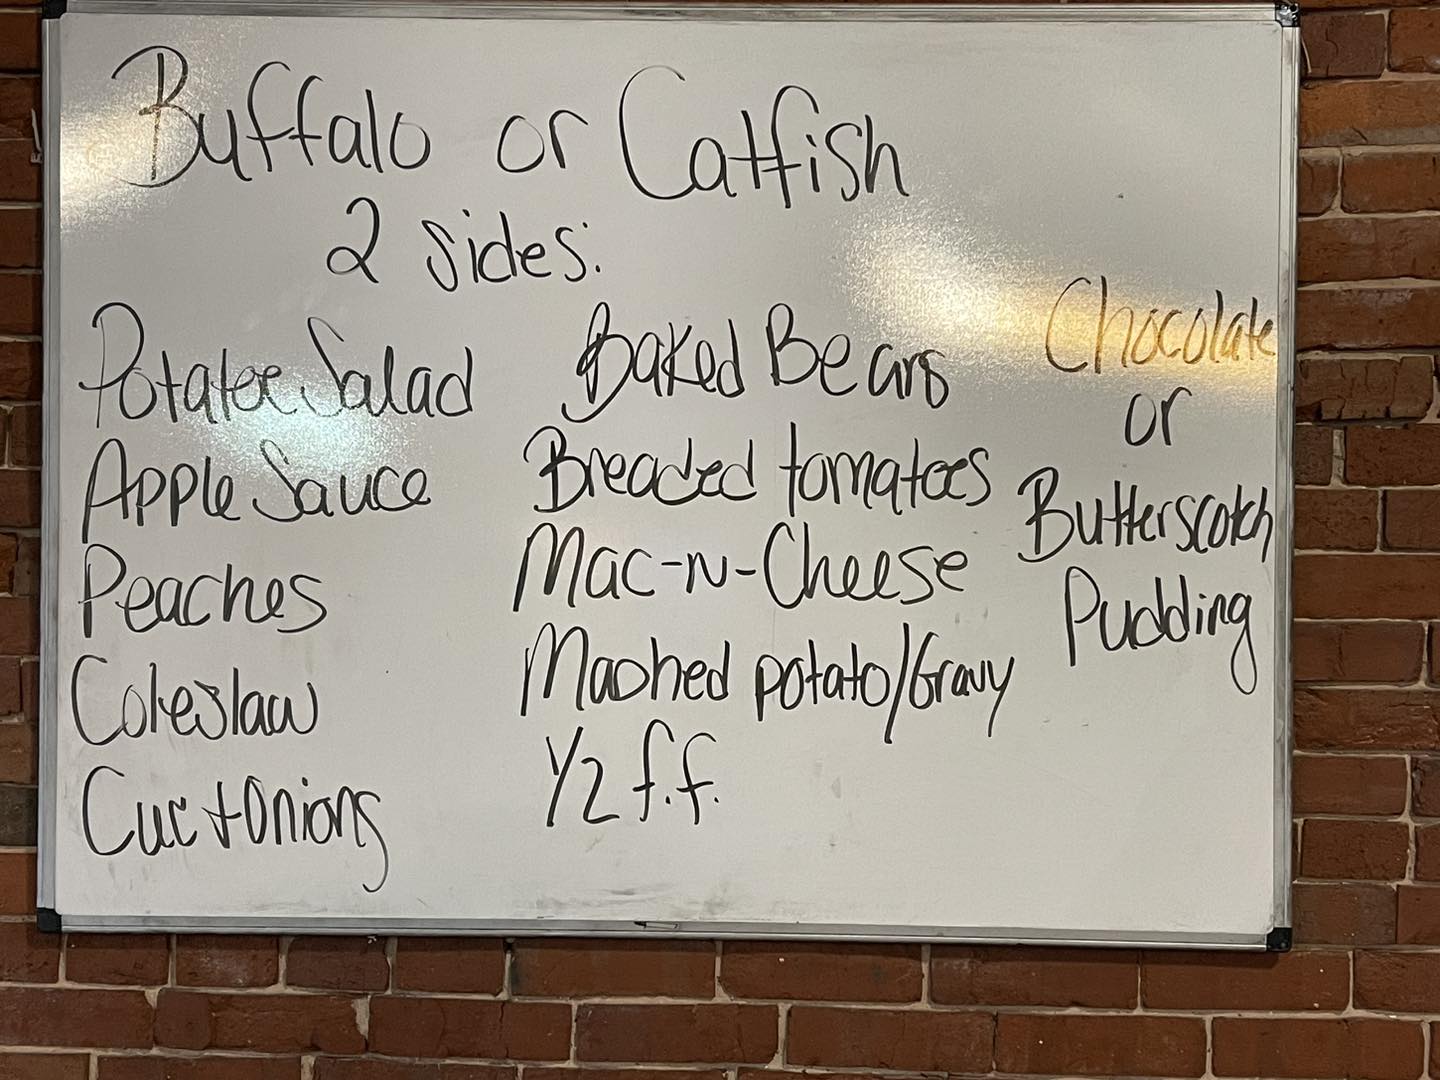 Buffalo or Catfish
2 sides:
Potatoe Salad
Apple Sauce
Peaches
Coleslaw
Cuc + Onions
Baked Beans
Breaded tomatoes
Mac-n-Cheese
Mashed potato/Gravy
1/2 f.f.
Chocolate
or
Butterscotch
Pudding